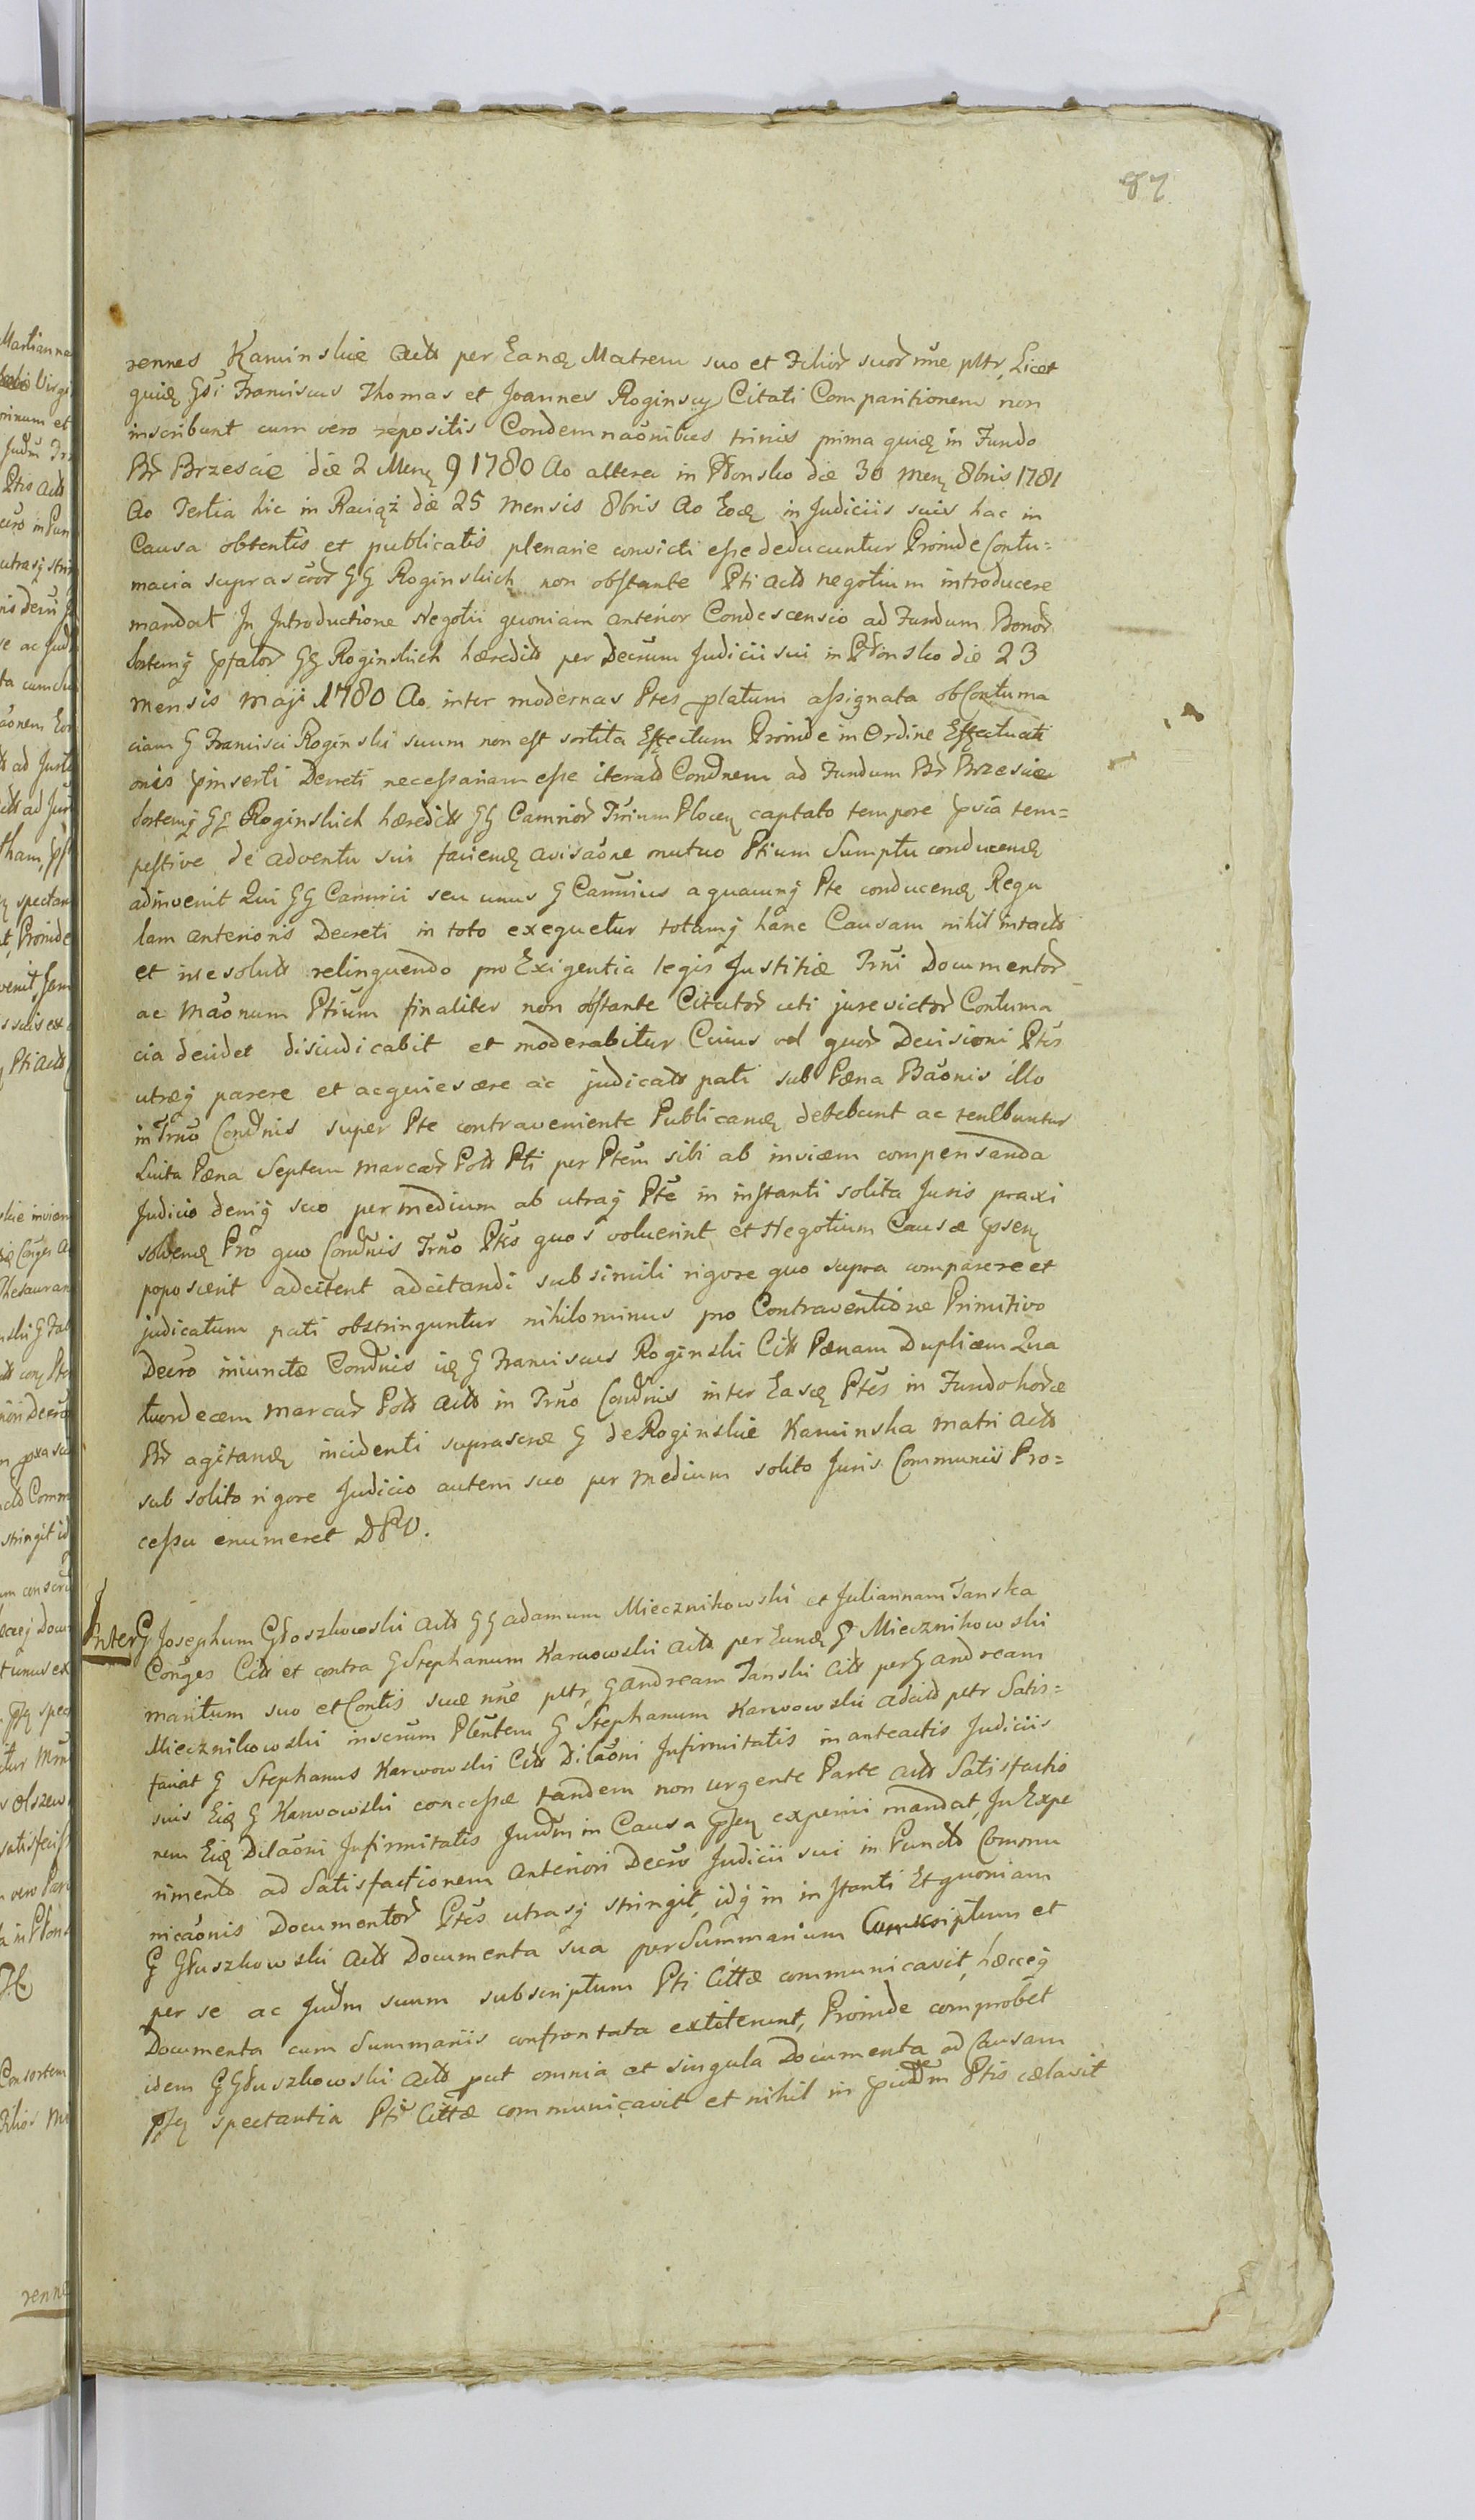 87
rennes Kaminskie Actt per Eandę Matrem suo et Filior̃ suor̃ nñe pltr, Licet
quidę Gsi Franciscus Thomas et Joannes Roginscy Citati Comparitionem non
inscribunt cum vero repositis Condemnaõnibus trinis prima quidę in Fundo
Br̃ Brzescie die 2 Menę 9 1780 Ao altera in Płonsko die 30 menę 8bris 1781
Ao Tertia hic in Raciąż die 25 mensis 8bris Ao Eodę in Judiciis suis hac in
Causa obtentis et publicatis plenarie convicti esse deducuntur Proinde Contu=
macia suprascr̃or̃ GG Roginskich non obstante Pti actt negotium introducere
mandat In Introductione Negotii quoniam anterior Condescensio ad Fundum Bonor̃
sortemq pfator̃ GG Roginskich hæreditt per Decrum Judicii sui in Płonsko die 23
mensis maji 1780 Ao inter modernas Ptes platum assignata ob Contuma
ciam G Francisci Roginski suum non est sortita Effectum Proinde in Ordine Effectuati
onis pinserti Decreti necessariam esse iteratt Condnem ad Fundum Br̃ Brzescie
sortemq GG Roginskich hæreditt GG Camrior̃ Trium Plocenę captato tempore pvia tem=
pestive de adventu sui faciendę avisaõne mutuo Ptium Sumptu conducendę
adinvenit Qui GG Camrii seu unus G Camrius a quacunq Pte conducendę Regu
lam anterioris Decreti in toto exequetur totamq hanc Causam nihil intactt
et irresolutt relinquendo pro Exigentia legis Justitiæ Trni Documentor̃
ac maõnum Ptium finaliter non obstante Citator̃ uti jure victor̃ Contuma
cia decidet disiudicabit et moderabitur Cuius vel quor̃ Decisioni Ptes
utræq parere et acquiescere ac judicatt pati sub Pæna Baõnis illo
in Trno Condnis super Pte contraveniente Publicandę debebunt ac tenebuntur
Luita Pæna Septem marcar̃ Poltt Pti per Ptem sibi ab invicem compensanda
Judicio deniq suo per medium ab utraq Pte in instanti solita Juris praxi
solvendę Pro quo Condnis Trno Ptes quos voluerint et Negotium Causæ psenę
poposcerit adcitent adcitandi sub simili rigore quo supra comparere et
judicatum pati obstringuntur nihilominus pro Contraventione Primitivo
Decro iniunctæ Condnis idę G Franciscus Roginski Citt Pænam Duplicem Qua
tuordecem marcar̃ Poltt Actt in Trno Condnis inter Easdę Ptes in Fundo horce
Br̃ agitandę incidenti suprascræ G de Roginskie Kaminska matri Actt
sub solito rigore Judicio autem suo per medium solito Juris Communis Pro=
cessu enumeret DPV.
Inter G Josephum Głoszkowski Actt GG Adamum Miecznikowski et Juliannam Tanska
Conges Citt et contra G Stephanum Karwowski Actt per Eundę G Miecznikowski
maritum suo et Contis suæ nñe pltr, G Andream Tanski Citt per G Andream
Miecznikowski inscrum Plentem G Stephanum Karwowski adcitt pltr Satis=
faciat G Stephanus Karwowski Citt Dilaõni Infirmitatis in anteactis Judiciis
suis Eidę G Karwowski concessæ tandem non urgente Parte actt Satisfactio
nem Eidę Dilaõni Infirmitatis Judm in Causa psenę experiri mandat, In Expe
rimento ad Satisfactionem anteriori Decro Judicii sui in Punctt Commu
nicaõnis Documentor̃ Ptes utrasq stringit, idq in instanti Et quoniam
G Głuszkowski Actt Documenta sua per Summarium Conscriptum et
per se ac Judm suum subscriptum Pti Cittæ communicavit, hæcceq
Documenta cum Summariis confrontata extiterunt, Proinde comprobet
idem G Głuszkowski Actt put omnia et singula Documenta ad Causam
psenę spectantia Pti Cittæ communicavit et nihil in pudm Ptis cælavit